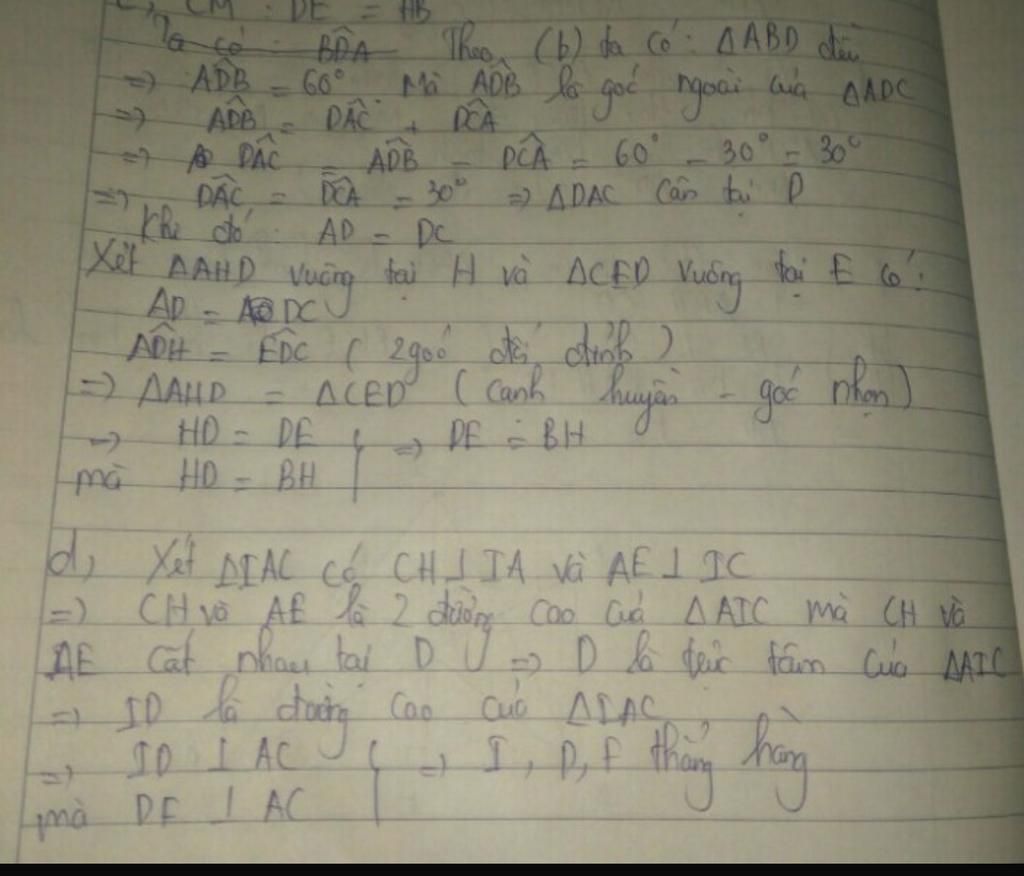 c, CM : DE = HB
Ta có : BD̂A Theo (b) ta có : ΔABD đều
=> AD̂B = 60° Mà AD̂B là góc ngoài của ΔADC
=> AD̂B = DÂC + DĈA
=> DÂC = AD̂B - DĈA = 60° - 30° = 30°
=> DÂC = DĈA = 30° => ΔDAC cân tại D
Khi đó : AD = DC
Xét ΔAHD vuông tại H và ΔCED vuông tại E có :
AD = DC
AD̂H = ED̂C ( 2 góc đối đỉnh )
=> ΔAHD = ΔCED ( Cạnh huyền - góc nhọn )
=> HD = DE } => DE = BH
mà HD = BH
d, Xét ΔIAC có CH ⊥ IA và AE ⊥ IC
=> CH và AE là 2 đường cao của ΔAIC mà CH và
AE cắt nhau tại D => D là trực tâm của ΔAIC
=> ID là đường cao của ΔIAC
=> ID ⊥ AC } => I, D, F thẳng hàng
mà DF ⊥ AC